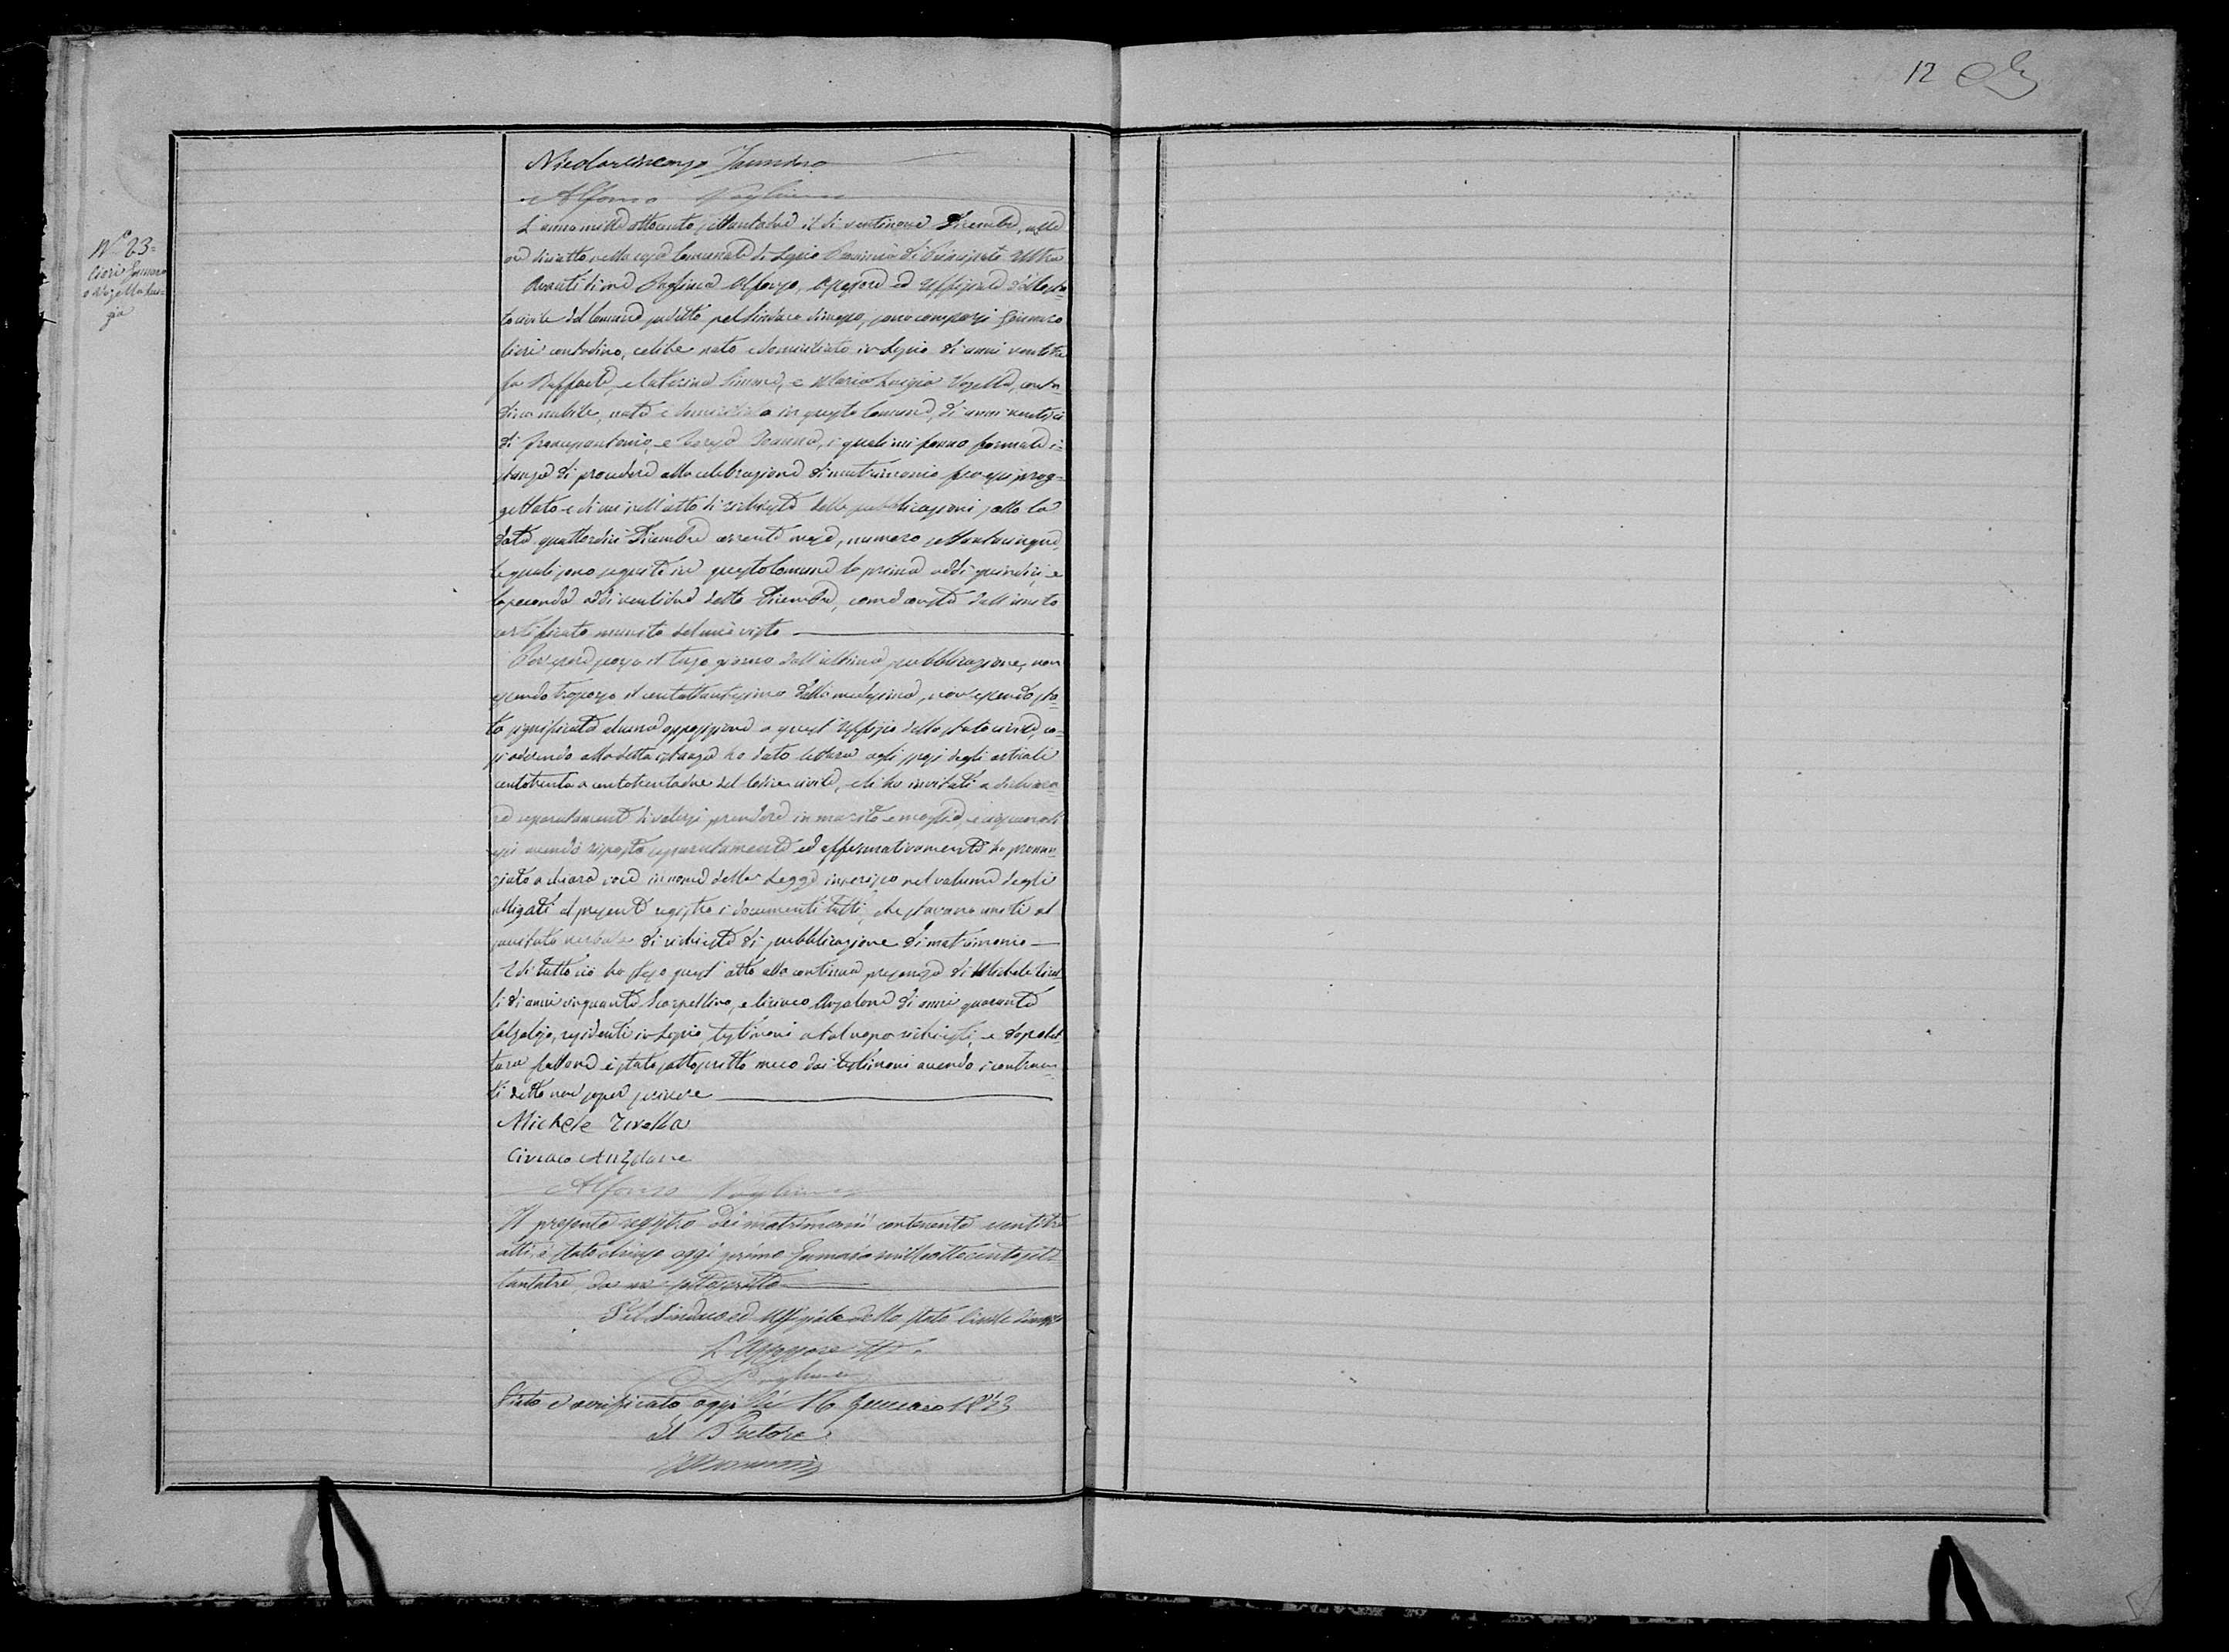 12
Nicolavincenzo Iannuzzo
Alfonso Pagliuca
N.º 23=
Cieri Gennaro
e Vozella Lui=
gia
L'anno mille ottocento settantadue il dì ventinove Dicembre, alle
ore diciotto nella casa Comunale di Lapio Provincia di Principato Ultra
Avanti di me Pagliuca Alfonso, Assessore ed Uffiziale dello sta=
to civile del Comune suddetto pel Sindaco dimesso, sono comparsi Gennaro
Cieri contadino, celibe nato e domiciliato in Lapio di anni ventitre
fu Raffaele, e Caterina, e Maria Luigia Vozella, conta=
dina nubile, nata e domiciliata in questo Comune, di anni ventisei
di Francesantonio, e Teresa, i quali mi fanno formale i=
stanza di procedere alla celebrazione di matrimonio fra essi prog=
gettato e di cui nell'atto di richiesta delle pubblicazioni sotto la
data quattordici Dicembre corrente mese, numero settantacinque,
le quali sono seguite in questo Comune la prima addì quindici, e
la seconda addì ventidue detto Dicembre, come consta dall'unito
certificato munito del mio visto
Per essere scorso il terzo giorno dall'ultima pubblicazione, non
essendo trascorso il centottantesimo dalla medesima, non essendo sta=
ta significata alcuna opposizione a quest'Uffizio dello stato civile, co=
sì aderendo alla detta istanza ho dato lettura agli sposi degli articoli
centotrenta a centotrentadue del Codice civile, e li ho invitati a dichiara=
re separatamente di volersi prendere in marito e moglie, e ciascuno di
essi avendo risposto separatamente ed affermativamente ho pronun=
ziato a chiara voce in nome della Legge inserisco nel volume degli
alligati al presente registro i documenti tutti, che stavano uniti al
succitato verbale di richiesta di pubblicazione di matrimonio
E di tutto ciò ho steso quest'atto alla continua presenza di Michele Tirel=
li di anni cinquanta Scarpellino, e Ciriaco Anzalone di anni quaranta
Calzolajo, residenti in Lapio, testimoni a tal uopo richiesti, e dopo let=
tura fattane è stato sottoscritto meco dai testimoni avendo i contraen=
ti detto non saper scrivere
Michele Tirella
Ciriaco Anzalone
Alfonso Pagliuca
Il presente registro dei matrimonii contenente ventitre
atti, è stato chiuso oggi primo Gennaio mille ottocento set=
tantatre, da me sottoscritto
Pel Sindaco ed Uffiziale dello stato Civile dimesso
L'Assessore
A Pagliuca
Visto e verificato oggi lì 16 Gennaio 1873
Il Pretore